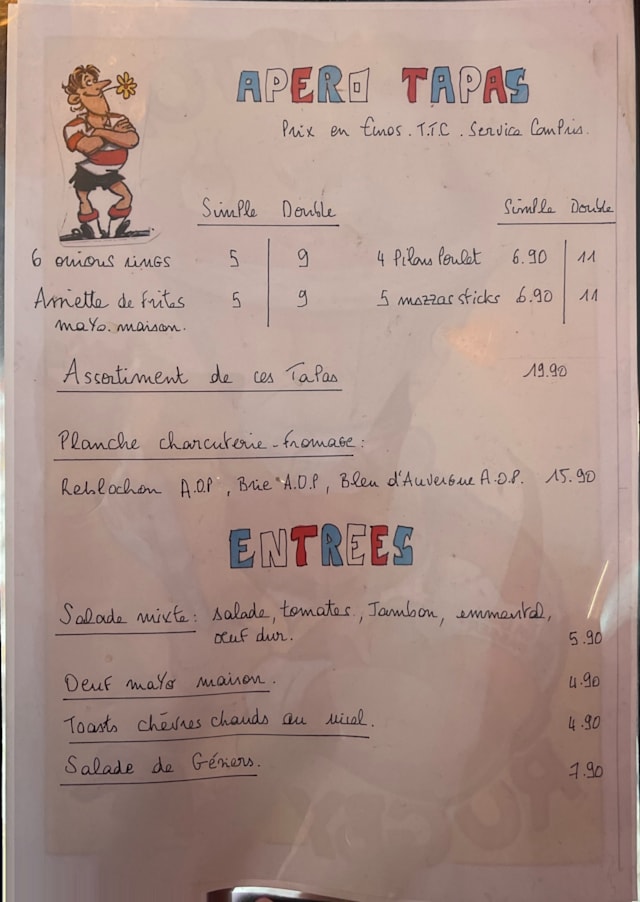 APERO TAPAS
Prix en Euros. T.T.C. Service Compris.
Simple Double
6 onions rings 5 9
Assiette de frites 5 9
mayo. maison.
Simple Double
4 Pilons Poulet 6.90 11
5 mozza sticks 6.90 11
Assortiment de ces Tapas 19.90
Planche charcuterie - fromage :
Reblochon A.O.P, Brie A.O.P, Bleu d'Auvergne A.O.P. 15.90
ENTREES
Salade mixte : salade, tomates, Jambon, emmental,
œuf dur. 5.90
Oeuf mayo maison. 4.90
Toasts chèvres chauds au miel. 4.90
Salade de Gésiers. 7.90
RUGBY